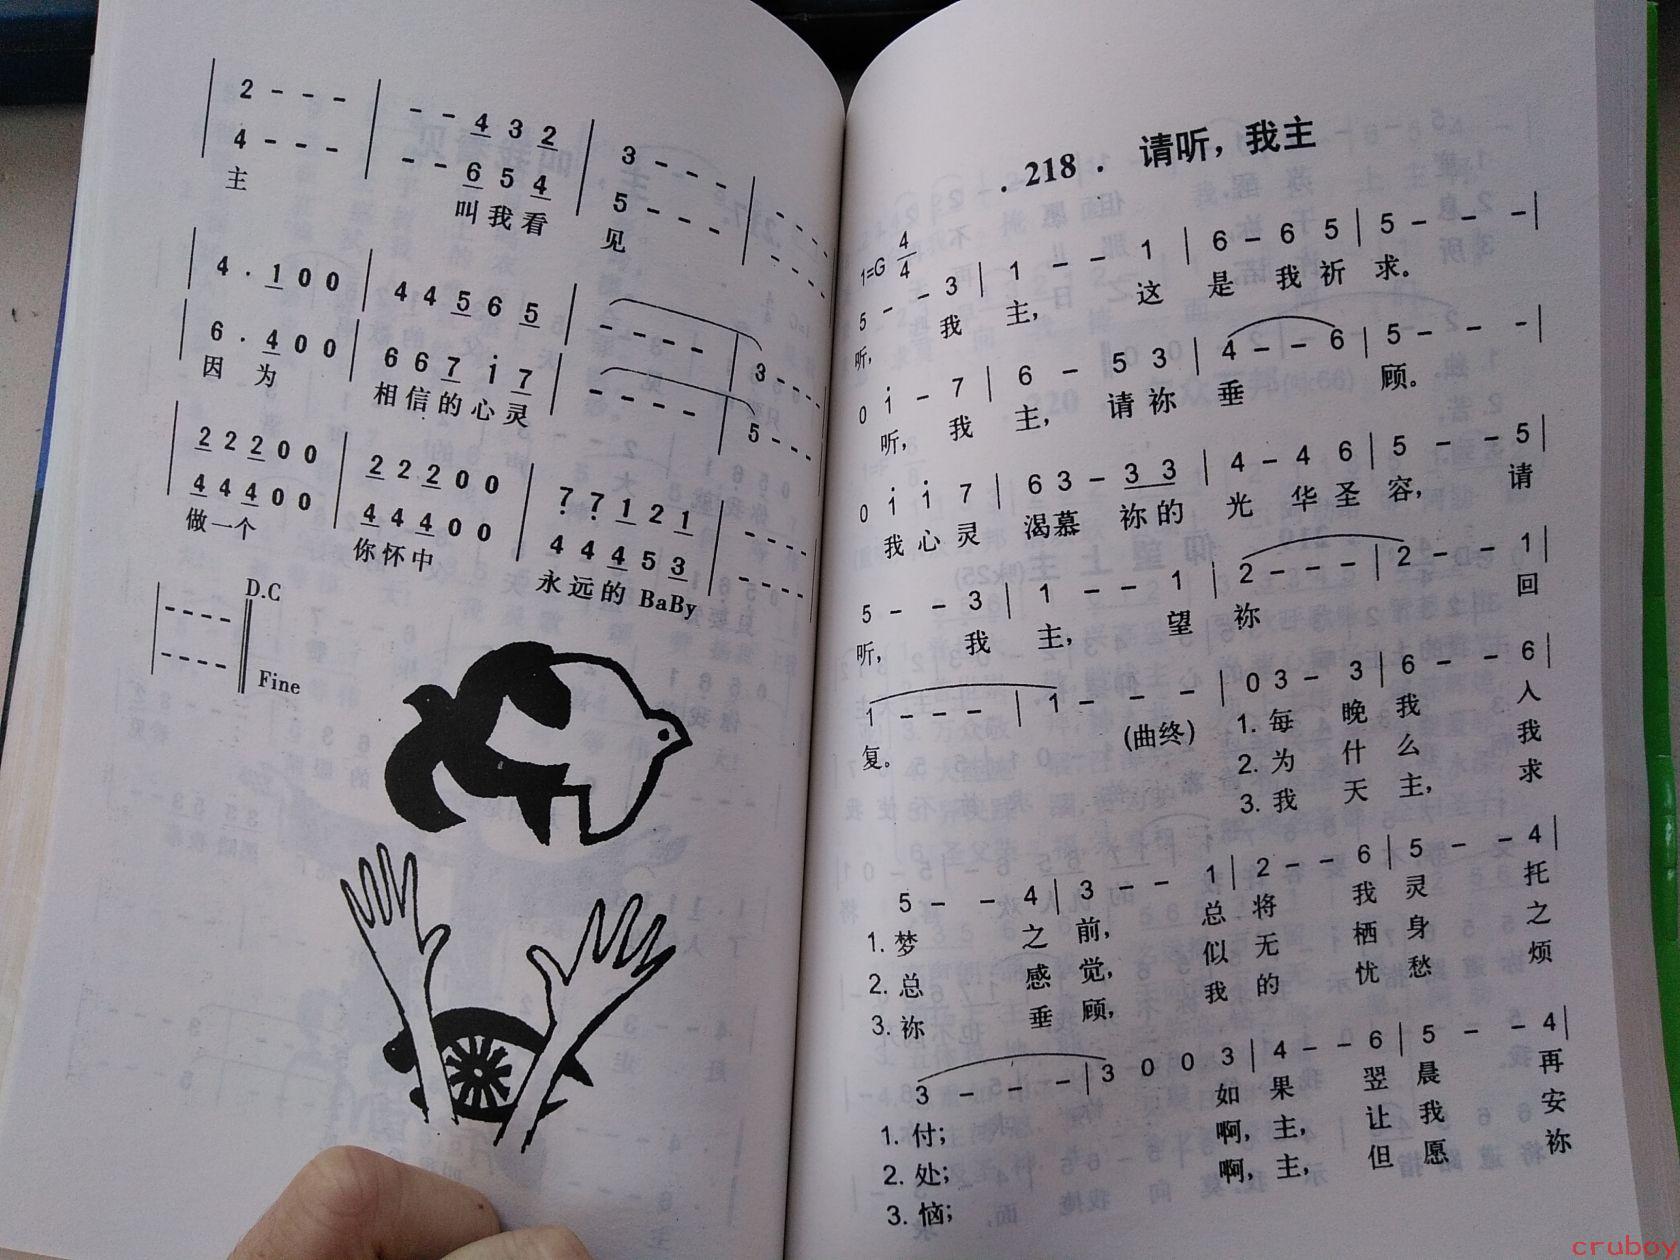 2 - - - | - - 4 3 2 | 3 - - - | - - - -
4 - - - | - - 6 5 4 | 5 - - - | - - - -
主 叫我看 见
4 · 1 0 0 | 4 4 5 6 5 | - - - - | 3 - - -
6 · 4 0 0 | 6 6 7 i 7 | - - - - | 5 - - -
因 为 相信的心灵
2 2 2 0 0 | 2 2 2 0 0 | 7 7 1 2 1 | - - - -
4 4 4 0 0 | 4 4 4 0 0 | 4 4 4 5 3 | - - - -
做一个 你怀中 永远的 BaBy
D.C
- - - -
- - - -
Fine
. 218 . 请听，我主
1=G 4/4
5 - - 3 | 1 - - 1 | 6 - 6 5 | 5 - - - |
听， 我 主， 这 是 我 祈 求。
0 i - 7 | 6 - 5 3 | 4 - - 6 | 5 - - - |
听， 我 主， 请 祢 垂 顾。
0 i i 7 | 6 3 - 3 3 | 4 - 4 6 | 5 - - 5 |
我 心 灵 渴慕 祢的 光 华 圣 容， 请
5 - - 3 | 1 - - 1 | 2 - - - | 2 - - 1 |
听， 我 主， 望 祢 回
1 - - - | 1 - - - | 0 3 - 3 | 6 - - 6 |
复。 (曲终) 1. 每 晚 我 入
2. 为 什 么 我
3. 我 天 主， 求
5 - - 4 | 3 - - 1 | 2 - - 6 | 5 - - 4 |
1. 梦 之 前， 总 将 我 灵 托
2. 总 感 觉， 似 无 栖 身 之
3. 祢 垂 顾， 我 的 忧 愁 烦
3 - - - | 3 0 0 3 | 4 - - 6 | 5 - - 4 |
1. 付； 如 果 翌 晨 再
2. 处； 啊， 主， 让 我 安
3. 恼； 啊， 主， 但 愿 祢
cruboy